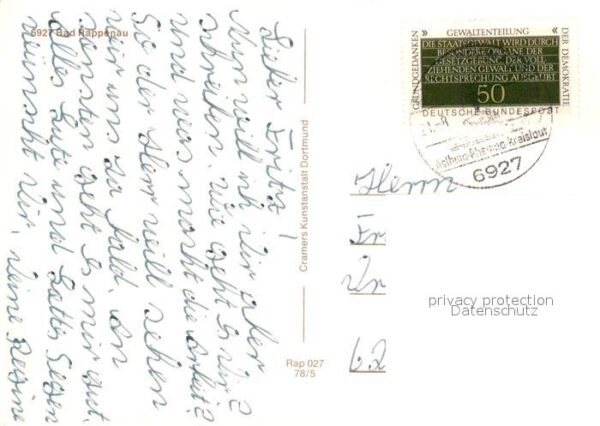 6927 Bad Rappenau
Lieber Fritz!
Nun will ich Dir aber
schreiben. wie geht es Dir?
und was macht die Arbeit?
So der Herr will sehen
wir uns ja bald. An
sonsten geht es mir gut.
Alles Gute und Gottes Segen
wünscht Dir, Deine Regine
Cramers Kunstanstalt Dortmund
Rap 027
78/5
GRUNDGEDANKEN » GEWALTENTEILUNG « DER DEMOKRATIE
DIE STAATSGEWALT WIRD DURCH
BESONDERE ORGANE DER
GESETZGEBUNG, DER VOLL
ZIEHENDEN GEWALT UND DER
RECHTSPRECHUNG AUSGEÜBT
50
DEUTSCHE BUNDESPOST
Asthma-Rheuma-Kreislauf
6927
Herrn
Fr
62
privacy protection
Datenschutz